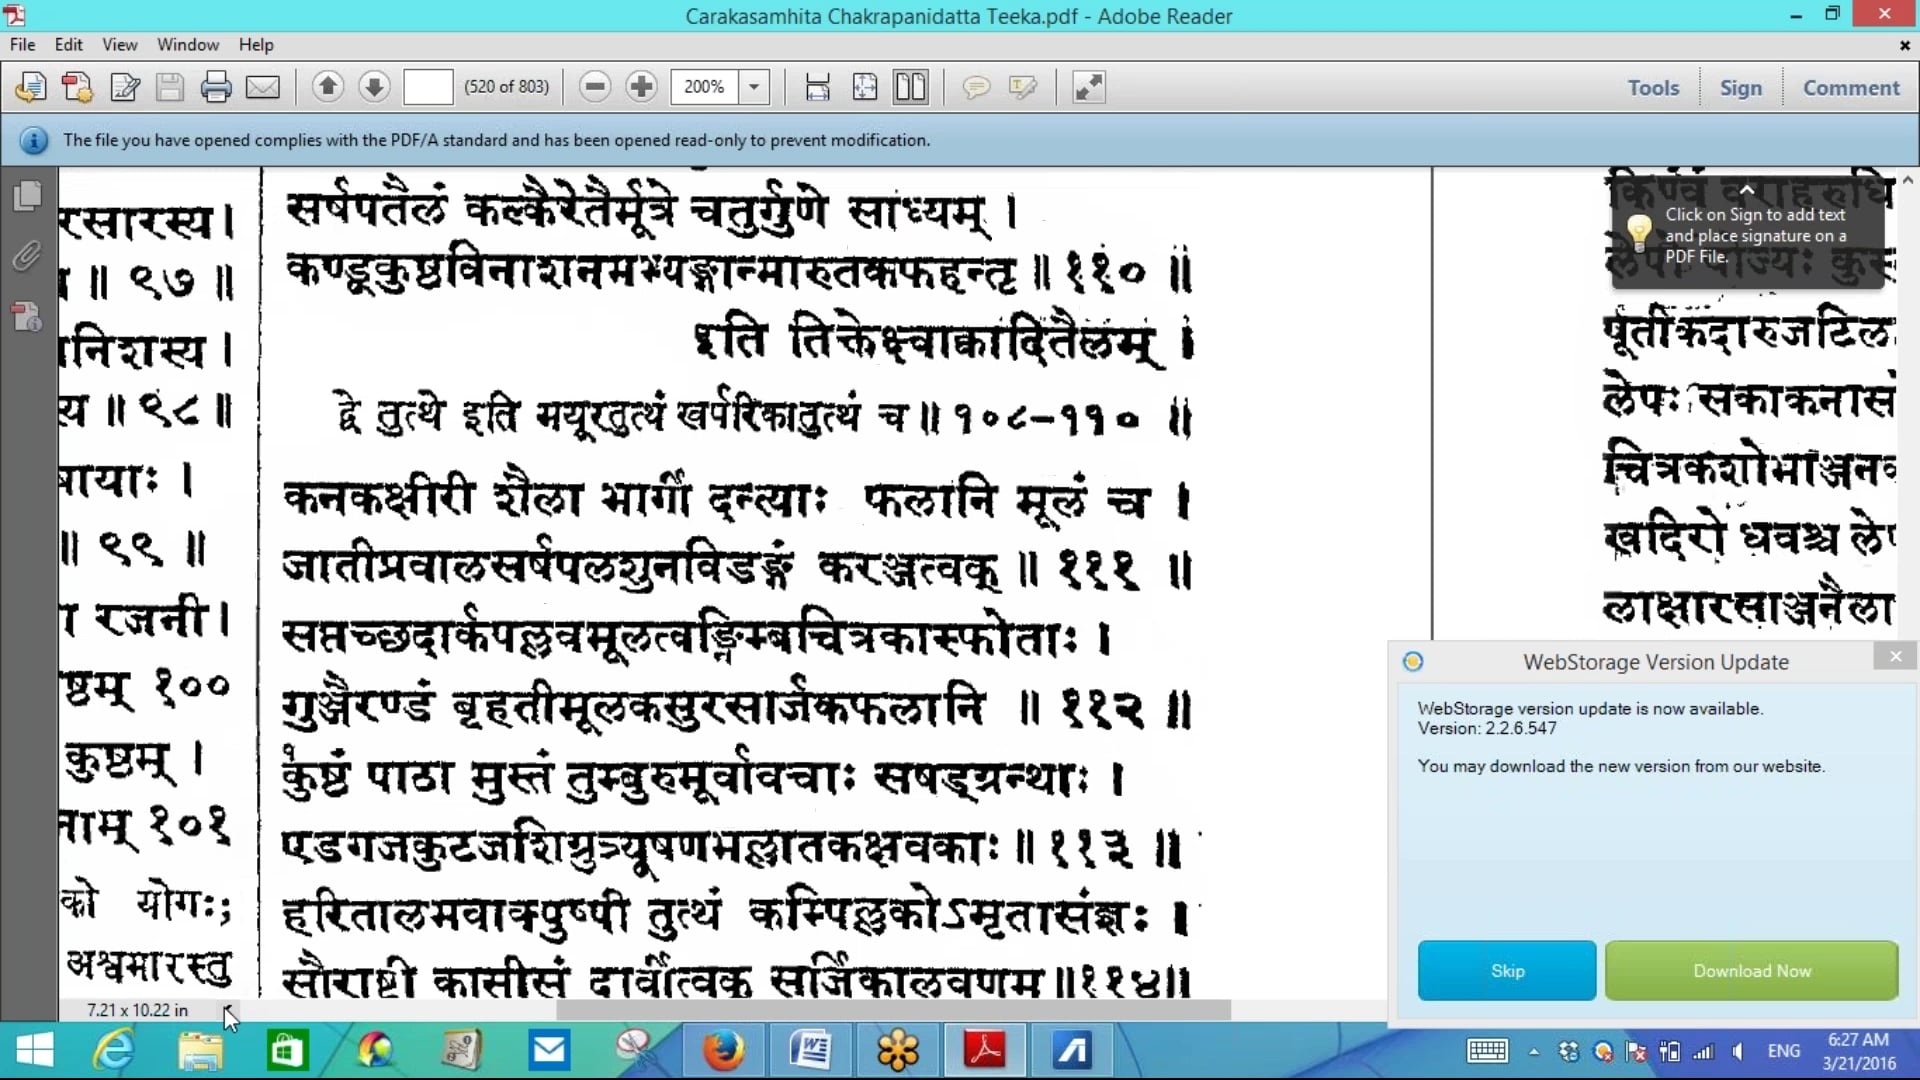 Carakasamhita Chakrapanidatta Teeka.pdf - Adobe Reader
File Edit View Window Help
(520 of 803) 200% Tools Sign Comment
The file you have opened complies with the PDF/A standard and has been opened read-only to prevent modification.
रसारस्य।
॥ ९७ ॥
निशस्य ।
य ॥ ९८ ॥
बायाः ।
॥ ९९ ॥
रजनी।
ष्ठम् १००
कुष्ठम् ।
नाम् १०१
को योगः;
अश्वमारस्तु
सर्षपतैलं कल्कैरेतैर्मूत्रे चतुर्गुणे साध्यम् ।
कण्डूकुष्ठविनाशनमभ्यङ्गान्मारुतकफहन्तृ ॥ ११० ॥
इति तिक्तेक्ष्वाक्वादितैलम् ।
द्वे तुत्थे इति मयूरतुत्थं खर्परिकातुत्थं च ॥ १०८-११० ॥
कनकक्षीरी शैला भार्गी दन्त्याः फलानि मूलं च ।
जातीप्रवालसर्षपलशुनविडङ्गं करञ्जत्वक् ॥ १११ ॥
सप्तच्छदार्कपल्लवमूलत्वङ्निम्बचित्रकास्फोताः ।
गुञ्जैरण्डं बृहतीमूलकसुरसार्जकफलानि ॥ ११२ ॥
कुष्ठं पाठा मुस्तं तुम्बुरुमूर्वावचाः सषड्ग्रन्थाः ।
एडगजकुटजशिग्रुत्र्यूषणभल्लातकक्षवकाः ॥ ११३ ॥
हरितालमवाक्पुष्पी तुत्थं कम्पिल्लकोऽमृतासंज्ञः ।
सौराष्ट्री कासीसं दार्वीत्वक् सर्जिकालवणम् ॥११४॥
Click on Sign to add text
and place signature on a
PDF File.
पूतीकदारुजटिल
लेपः सकाकनासं
चित्रकशोभाञ्जनक
खदिरो धवश्च लेप
लाक्षारसाञ्जनैला
WebStorage Version Update
WebStorage version update is now available.
Version: 2.2.6.547
You may download the new version from our website.
Skip Download Now
7.21 x 10.22 in
ENG 6:27 AM
3/21/2016